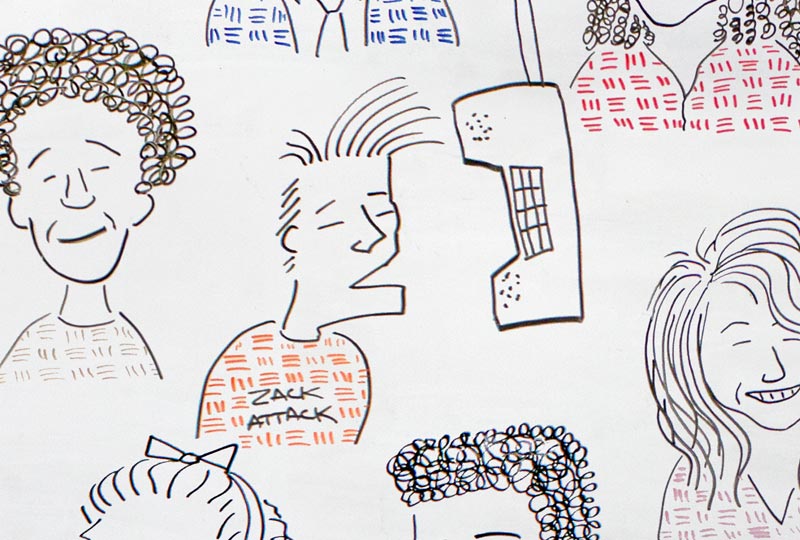 ZACK
ATTACK